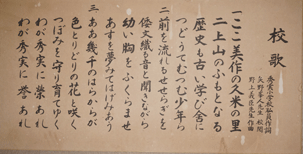 校歌
秀実小学校職員作詞
矢野峯人先生校閲
野上義臣先生作曲
一 ここ美作の久米の里
二上山のふもとなる
歴史も古い学び舎に
つどうてむつむ少年ら
二 前を流れるせせらぎを
倭文織る音と聞きながら
幼い胸をふくらませ
あすを夢みてはげみあう
三 ああ幾千のはらからが
色とりどりの花と咲く
つぼみを守り育てゆく
わが秀実に栄あれ
わが秀実に誉あれ